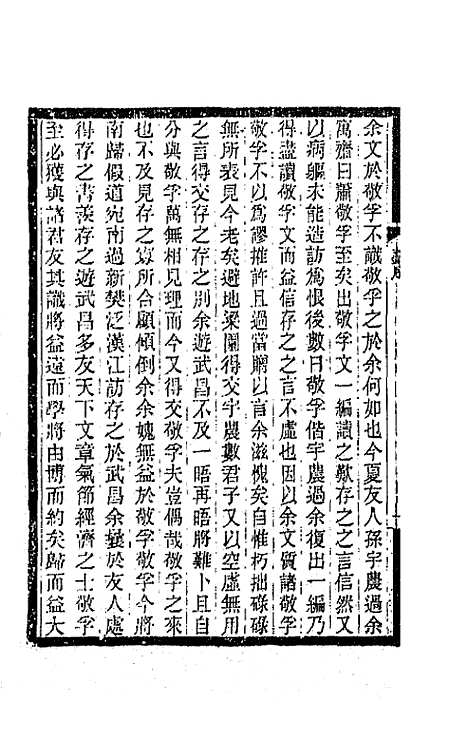 余文於敬孚不識敬孚之於余何如也今夏友人孫宇農過余
寓齋曰蕭敬孚至矣出敬孚文一編讀之歎存之之言信然又
以病軀未能造訪爲恨後數日敬孚偕宇農過余復出一編乃
得盡讀敬孚文而益信存之之言不虛也因以余文質諸敬孚
敬孚不以爲謬推許且過當聘以言余滋愧矣自惟朽拙碌碌
無所表見今老矣避地梁園得交宇農數君子又以空虛無用
之言得交存之存之別余遊武昌不及一晤再晤將難卜且自
分與敬孚萬無相見理而今又得交敬孚夫豈偶哉敬孚之來
也不及見存之寡所合願傾倒余余媿無益於敬孚敬孚今將
南歸假道宛南過新樊泛漢江訪存之於武昌余曩於友人處
得存之書羨存之遊武昌多友天下文章氣節經濟之士敬孚
至必獲與諸君友其識將益遠而學將由博而約矣歸而益大